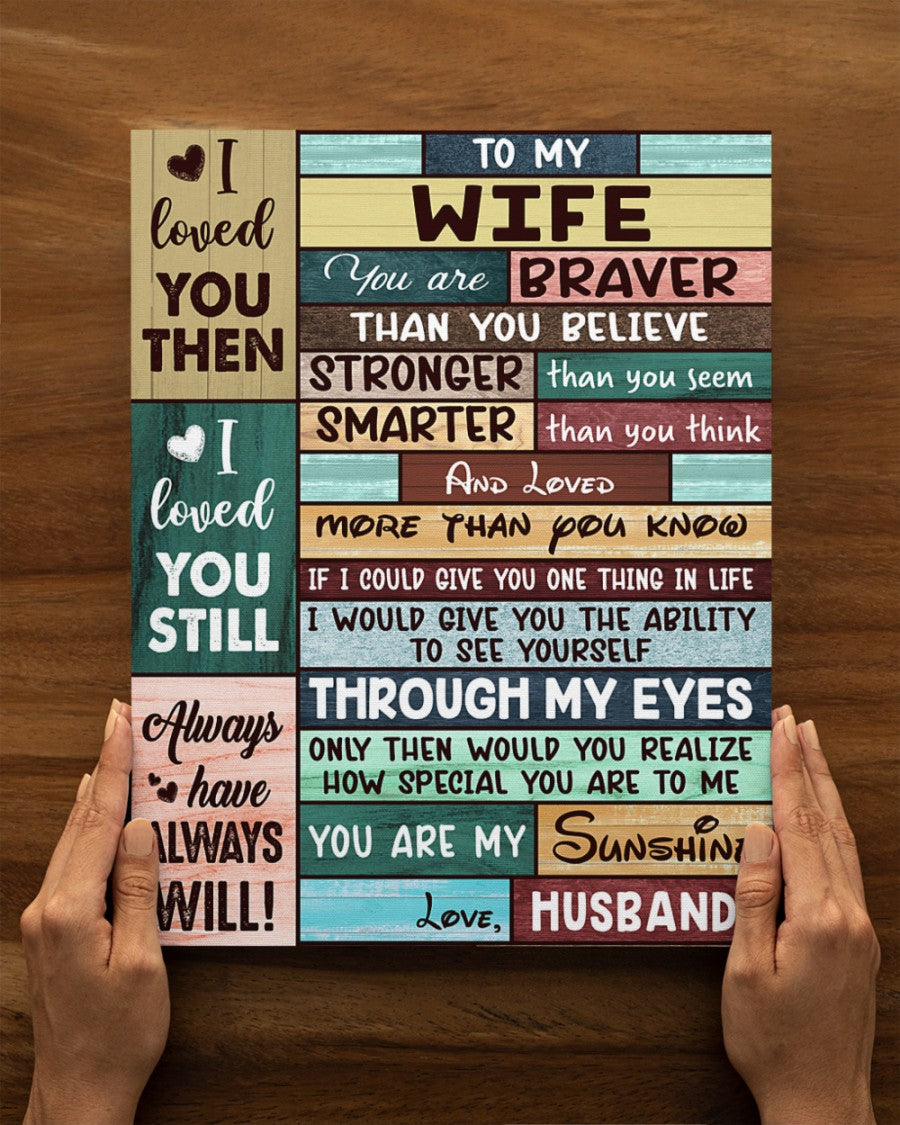 I
loved
YOU
THEN
I
loved
YOU
STILL
Always
have
ALWAYS
WILL!
TO MY
WIFE
You are BRAVER
THAN YOU BELIEVE
STRONGER than you seem
SMARTER than you think
AND LOVED
MORE THAN YOU KNOW
IF I COULD GIVE YOU ONE THING IN LIFE
I WOULD GIVE YOU THE ABILITY
TO SEE YOURSELF
THROUGH MY EYES
ONLY THEN WOULD YOU REALIZE
HOW SPECIAL YOU ARE TO ME
YOU ARE MY SUNSHINE
LOVE, HUSBAND